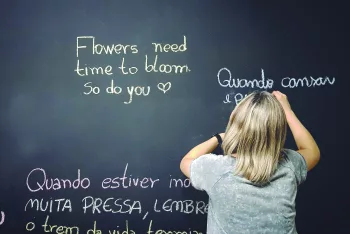 Flowers need
time to bloom.
So do you ♡
Quando cansar
Quando estiver
MUITA PRESSA, LEMBRE
o trem da vida